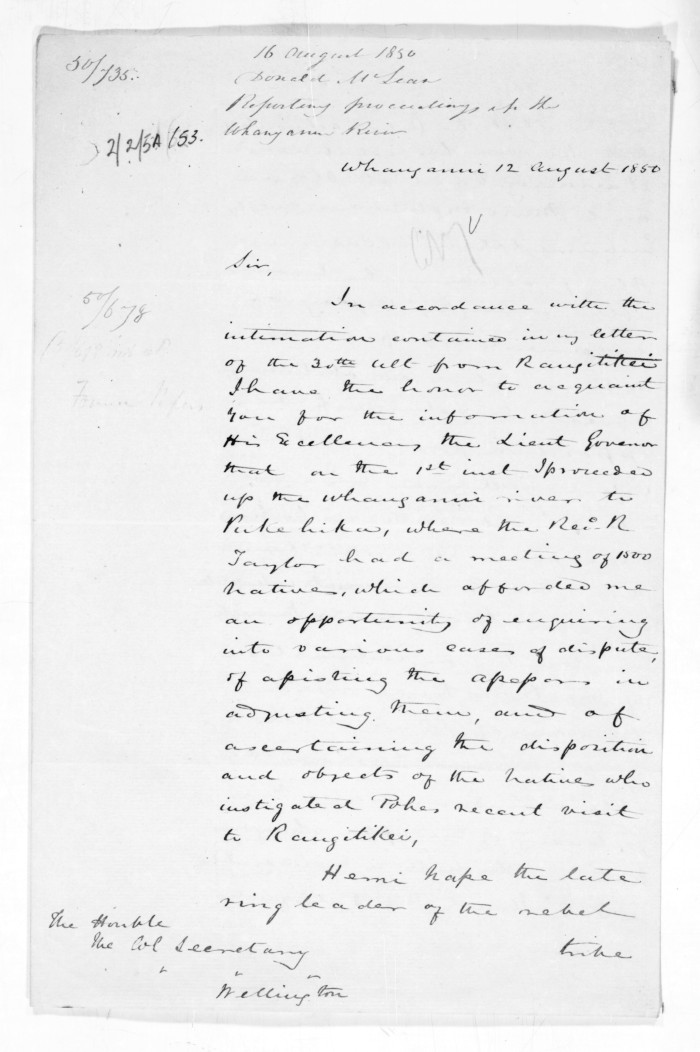 50/735.
16 August 1850
Donald McLean
Reporting proceedings up the
Whanganui River
2/2/5A/53.
Whanganui 12 August 1850
Sir,
50/678
In accordance with the
intimation contained in my letter
of the 30th ult from Rangitikei
I have the honor to acquaint
you for the information of
His Excellency the Lieut Governor
that on the 1st inst I proceeded
up the Whanganui river to
Pukehika, where the Revd. R
Taylor had a meeting of 1500
natives, which afforded me
an opportunity of enquiring
into various cases of dispute,
of assisting the assessors in
adjusting them, and of
ascertaining the disposition
and objects of the natives who
instigated Pohes recent visit
to Rangitikei,
Hemi hape the late
ring leader of the rebel
tribe
The Honble
The Col Secretary
" " "
Wellington